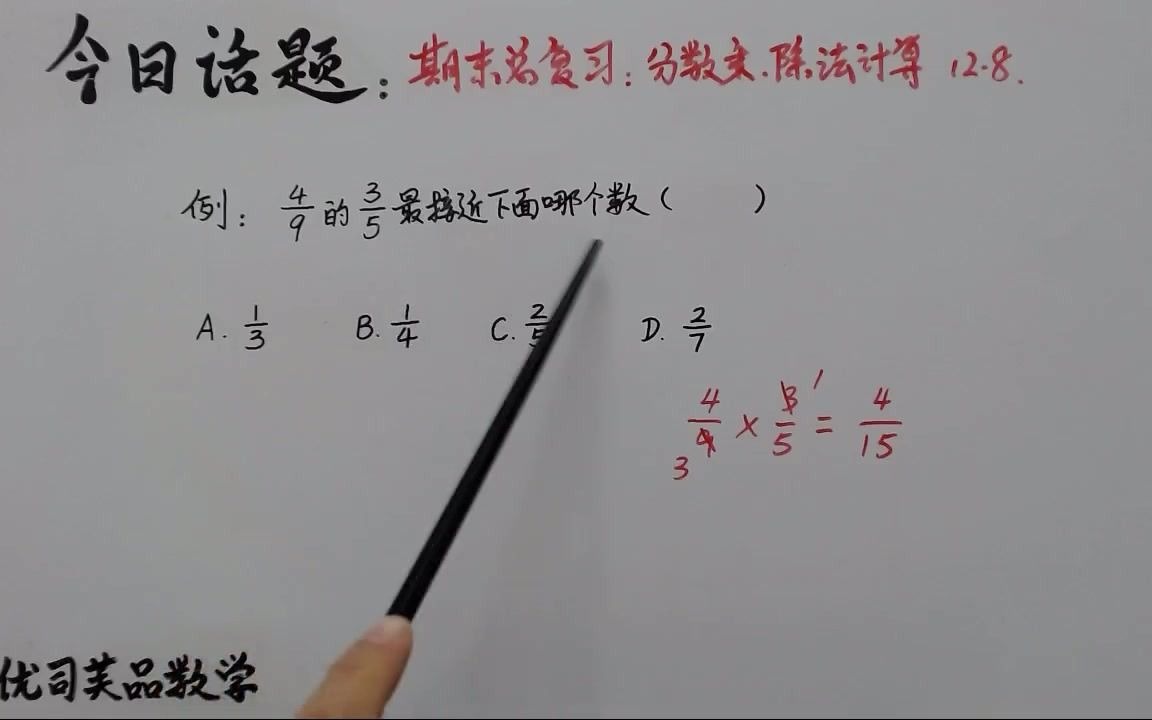 今日话题：期末总复习：分数乘.除法计算 12.8.
例：4/9的3/5最接近下面哪个数（ ）
A. 1/3 B. 1/4 C. 2/5 D. 2/7
4/9 × 3/5 = 4/15
3 1
优司芙品数学